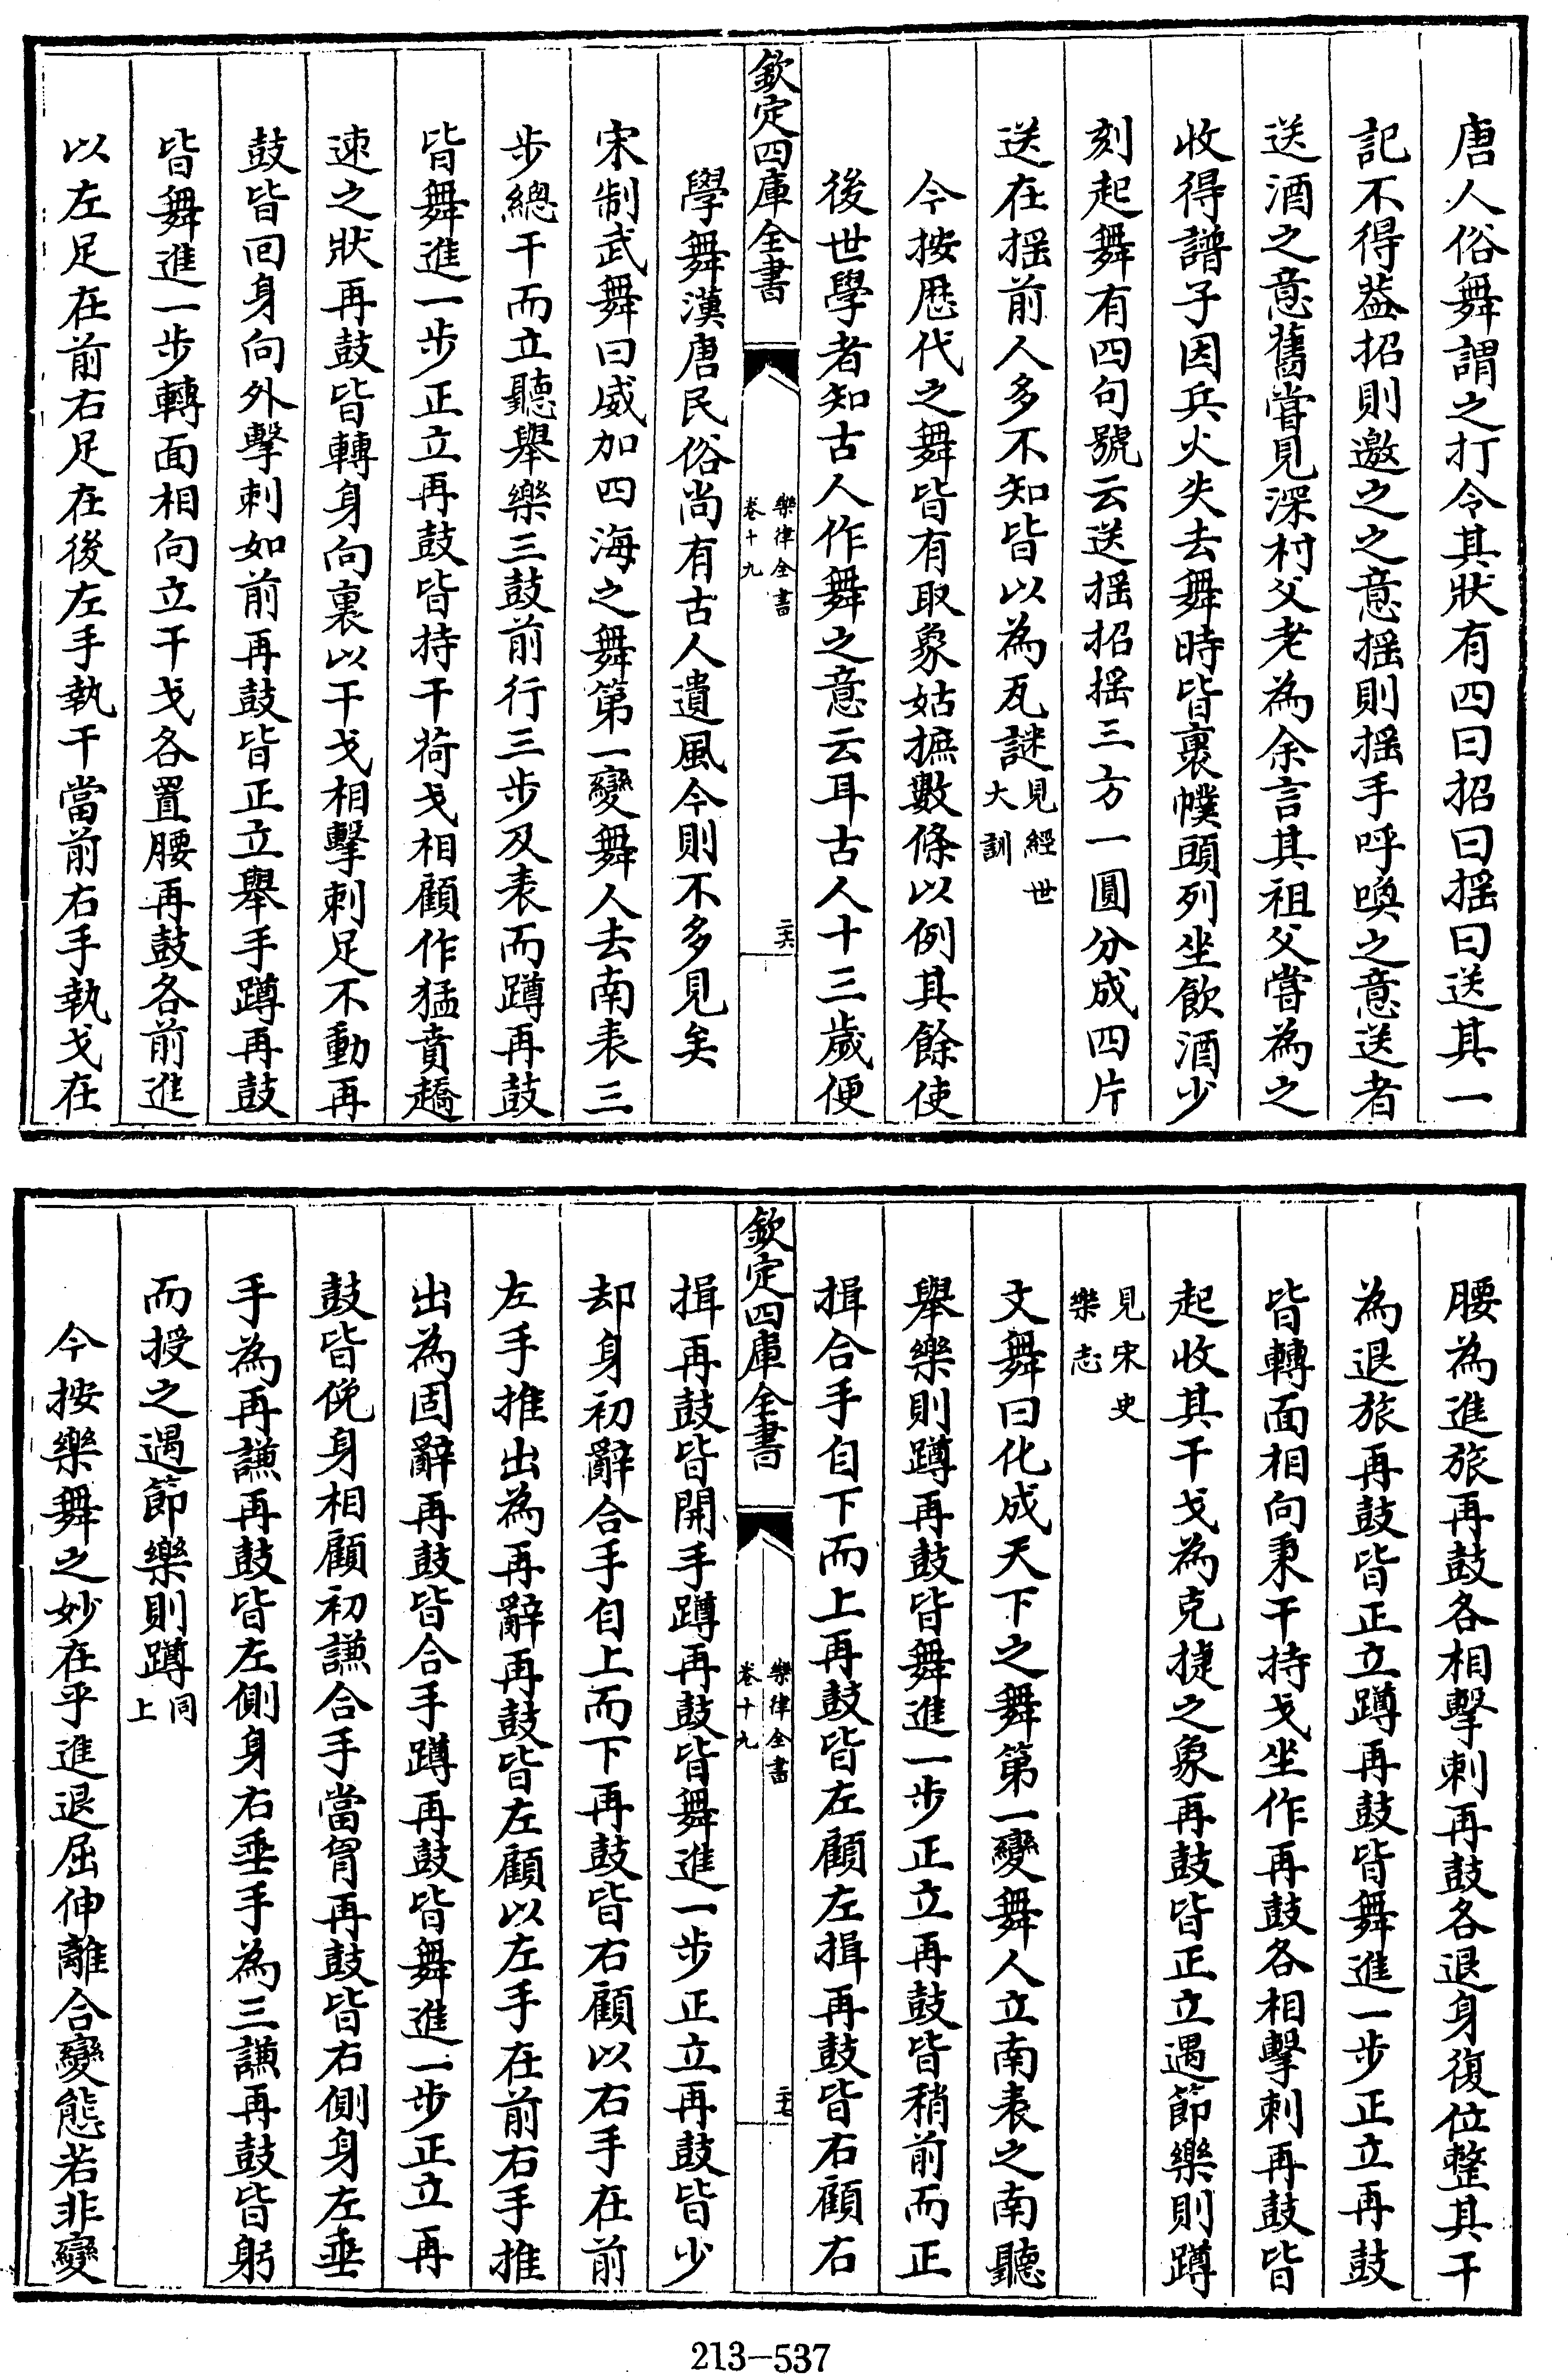 唐人俗舞謂之打令其狀有四曰招曰揺曰送其一
記不得葢招則邀之之意揺則揺手呼喚之意送者
送酒之意舊嘗見深村父老為余言其祖父嘗為之
收得譜子因兵火失去舞時皆裹幞頭列坐飲酒少
刻起舞有四句號云送揺招揺三方一圓分成四片
送在揺前人多不知皆以為瓦謎見經世大訓
今按歴代之舞皆有取象姑摭數條以例其餘使
後世學者知古人作舞之意云耳古人十三歲便
欽定四庫全書
樂律全書
卷十九
二六
學舞漢唐民俗尚有古人遺風今則不多見矣
宋制武舞曰威加四海之舞第一變舞人去南表三
步總干而立聽舉樂三鼓前行三步及表而蹲再鼓
皆舞進一步正立再鼓皆持干荷戈相顧作猛賁趫
速之狀再鼓皆轉身向裏以干戈相擊刺足不動再
鼓皆回身向外擊刺如前再鼓皆正立舉手蹲再鼓
皆舞進一步轉面相向立干戈各置腰再鼓各前進
以左足在前右足在後左手執干當前右手執戈在
腰為進旅再鼓各相擊刺再鼓各退身復位整其干
為退旅再鼓皆正立蹲再鼓皆舞進一步正立再鼓
皆轉面相向秉干持戈坐作再鼓各相擊刺再鼓皆
起收其干戈為克捷之象再鼓皆正立遇節樂則蹲
見宋史樂志
文舞曰化成天下之舞第一變舞人立南表之南聽
舉樂則蹲再鼓皆舞進一步正立再鼓皆稍前而正
揖合手自下而上再鼓皆左顧左揖再鼓皆右顧右
欽定四庫全書
樂律全書
卷十九
二七
揖再鼓皆開手蹲再鼓皆舞進一步正立再鼓皆少
却身初辭合手自上而下再鼓皆右顧以右手在前
左手推出為再辭再鼓皆左顧以左手在前右手推
出為固辭再鼓皆合手蹲再鼓皆舞進一步正立再
鼓皆俛身相顧初謙合手當胷再鼓皆右側身左垂
手為再謙再鼓皆左側身右垂手為三謙再鼓皆躬
而授之遇節樂則蹲同上
今按樂舞之妙在乎進退屈伸離合變態若非變
213-537